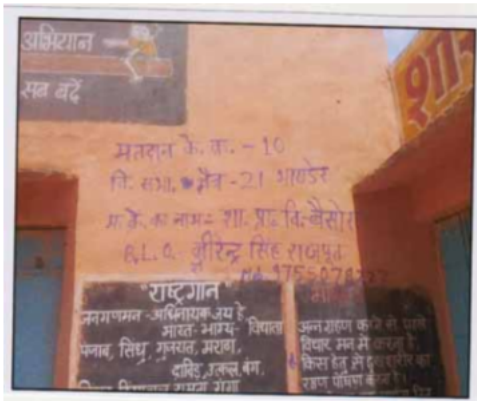 अभियान
सब बढ़ें
शा
मतदान के. क्र. - 10
वि. सभा. क्षेत्र - 21 भाण्डेर
म. के. का नाम - शा. प्रा. वि. बैसोरा
B.L.O. - बीरेन्द्र सिंह राजपूत
"राष्ट्रगान"
जनगणमन - अधिनायक जय हे,
भारत - भाग्य - विधाता
पंजाब, सिंधु, गुजरात, मराठा,
द्राविड़, उत्कल, बंग,
अन्न ग्रहण करने से पहले
विचार मन में करना है
किस हेतु से इस शरीर का
रक्षण पोषण करना है।